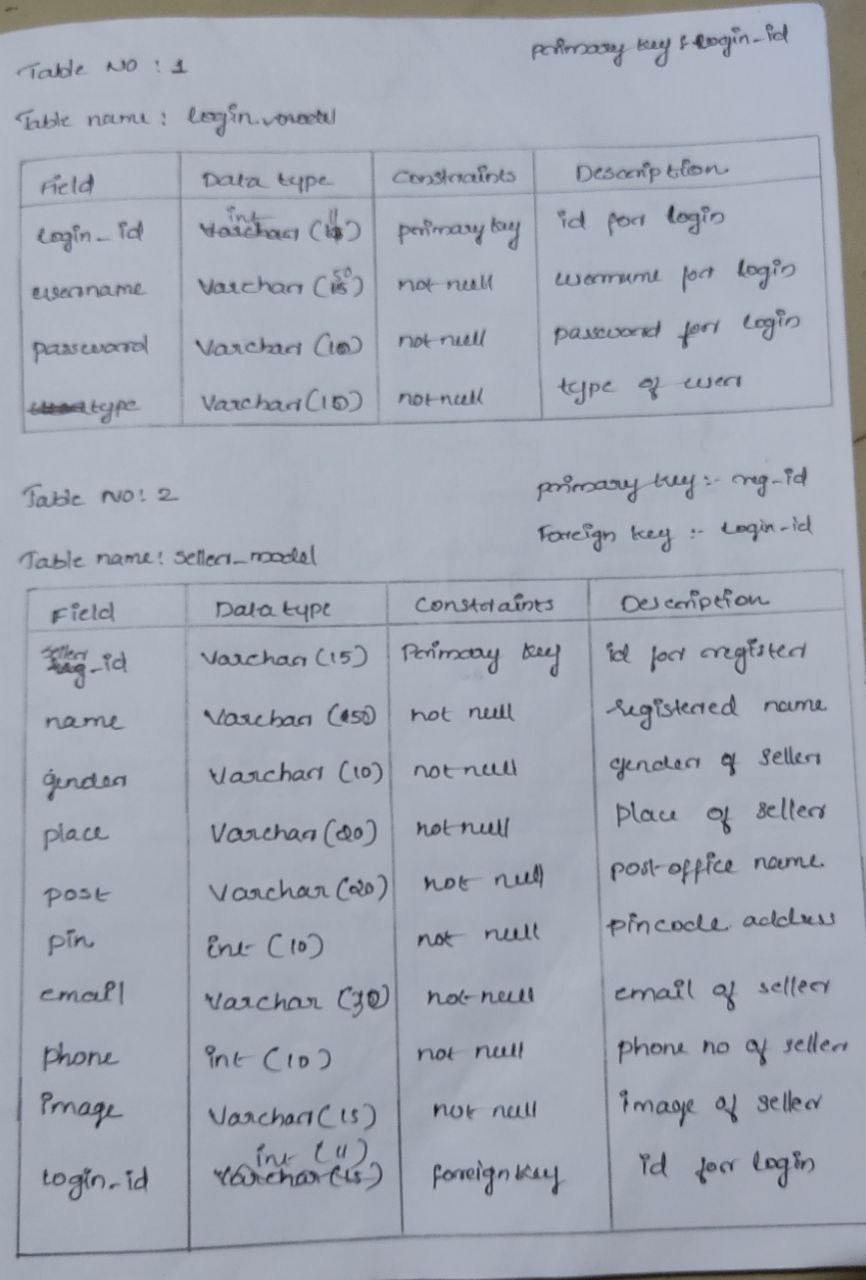 Table No : 1
primary key : login-id
Table name : login-model
Field Data type Constraints Description
login-id int (11) primary key id for login
username Varchar (50) not null username for login
password Varchar (10) not null password for login
type Varchar (10) not null type of user
Table No : 2
primary key :- reg-id
Foreign key :- Login-id
Table name : seller-model
Field Data type Constraints Description
seller-id Varchar (15) Primary key id for register
name Varchar (50) not null registered name
gender Varchar (10) not null gender of seller
place Varchar (20) not null place of seller
post Varchar (20) not null post office name.
pin int (10) not null pincode address
email Varchar (30) not null email of seller
phone int (10) not null phone no of seller
image Varchar (15) not null image of seller
login-id int (11) foreign key id for login